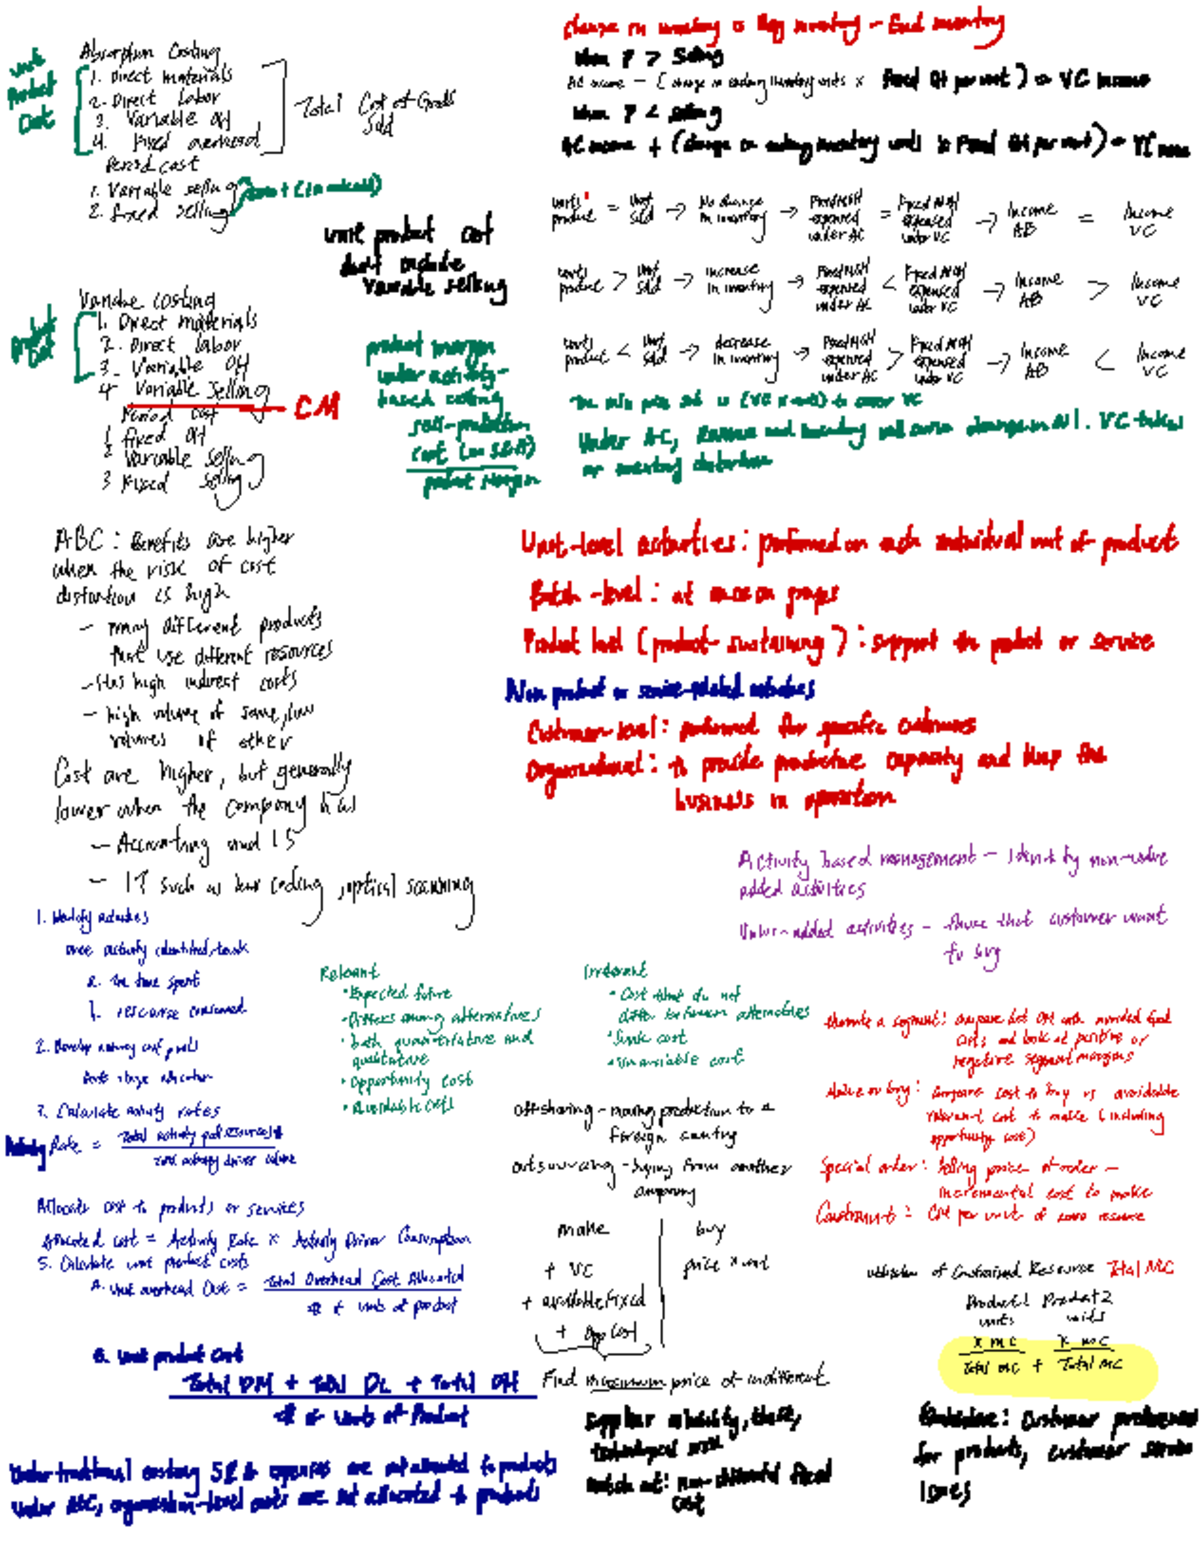 Absorption Costing
Unit Product Cost
1. Direct materials
2. Direct Labor
3. Variable OH
4. Fixed overhead
Total Cost of Goods Sold
Period cost
1. Variable selling
2. Fixed selling
unit product cost
don't include
variable selling
Variable costing
Product Cost
1. Direct materials
2. Direct labor
3. Variable OH
4. Variable Selling
CM
Period cost
1 fixed OH
2 Variable Selling
3 Fixed Selling
product margin
under activity-
based costing
cost (no SG&A)
product margin
change in inventory is Beg inventory - End inventory
When P > Selling
AC income - (change in ending inventory units x Fixed OH per unit) = VC income
When P < selling
AC income + (change in ending inventory units x Fixed OH per unit) = VC income
units produce = Unit Sold → No change in inventory → Fixed MOH expensed under AC = Fixed MOH expensed under VC → Income AB = Income VC
units produce > Unit Sold → increase in inventory → Fixed MOH expensed under AC < Fixed MOH expensed under VC → Income AB > Income VC
units product < Unit Sold → decrease in inventory → Fixed MOH expensed under AC > Fixed MOH expensed under VC → Income AB < Income VC
to cover VC
Under AC, Revenue and inventory will cause change in NI. VC
ABC: Benefits are higher
when the risk of cost
distortion is high
- many different products
that use different resources
- Has high indirect costs
- high volume of some, low
volumes of other
Cost are higher, but generally
lower when the company has
- Accounting and IS
- IT such as bar coding, optical scanning
Unit-level activities: performed on each individual unit of product
Batch-level:
Product level (product-sustaining): support the product or service
Non product or service-related activities
Customer-level: performed for specific customers
Organizational: to provide productive capacity and keep the
business in operation
Activity based management - Identify non-value
added activities
Value-added activities - those that customer want
to buy
1. Identify activities
once activity identified, track
a. the time spent
b. resource consumed
2. Develop activity cost pools
3. Calculate activity rates
Activity Rate = Total activity pool resources $
Total activity driver volume
Allocate cost to products or services
Allocated cost = Activity Rate x Activity Driver Consumption
5. Calculate unit product costs
A. Unit overhead Cost = Total Overhead Cost Allocated
# of units of product
6. Unit product Cost
Total DM + Total DL + Total OH
# of Units of Product
Under traditional costing SG&A expenses are not allocated to products
Under ABC, organization-level costs are not allocated to products
Relevant
• Expected future
• Differs among alternatives
• both quantitative and
qualitative
• Opportunity cost
• Avoidable costs
Irrelevant
• Cost that do not
differ between alternatives
• Sunk cost
• Unavoidable cost
Offshoring - moving production to a
foreign country
Outsourcing - buying from another
company
make
buy
+ VC
price x unit
+ avoidable fixed
+ Opp Cost
Find maximum price of indifferent
Supplier reliability,
technological
Watch out: non-eliminated fixed
cost
Eliminate a segment: compare lost CM with avoided fixed
costs and look at positive or
negative segment margins
Make or buy: compare cost to buy vs avoidable
relevant cost to make (including
opportunity cost)
Special order: selling price of order -
incremental cost to make
Constraint: CM per unit of scarce resource
Utilization of Constrained Resource Total MC
Product 1 units
Product 2 units
x mc
Total mc
+
x mc
Total mc
Qualitative: Customer preferences
for products, customer service
issues